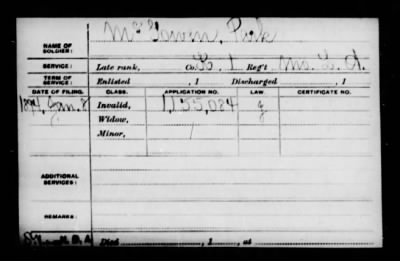 NAME OF SOLDIER: McGowen, Park
SERVICE: Late rank, Co. L, 1 Reg't Mo. L. A.
TERM OF SERVICE: Enlisted , 1 Discharged , 1
DATE OF FILING. CLASS. APPLICATION NO. LAW. CERTIFICATE NO.
1894, Jan. 8 Invalid, 1,155,084
Widow,
Minor,
ADDITIONAL SERVICES:
REMARKS:
Died , 1 , at